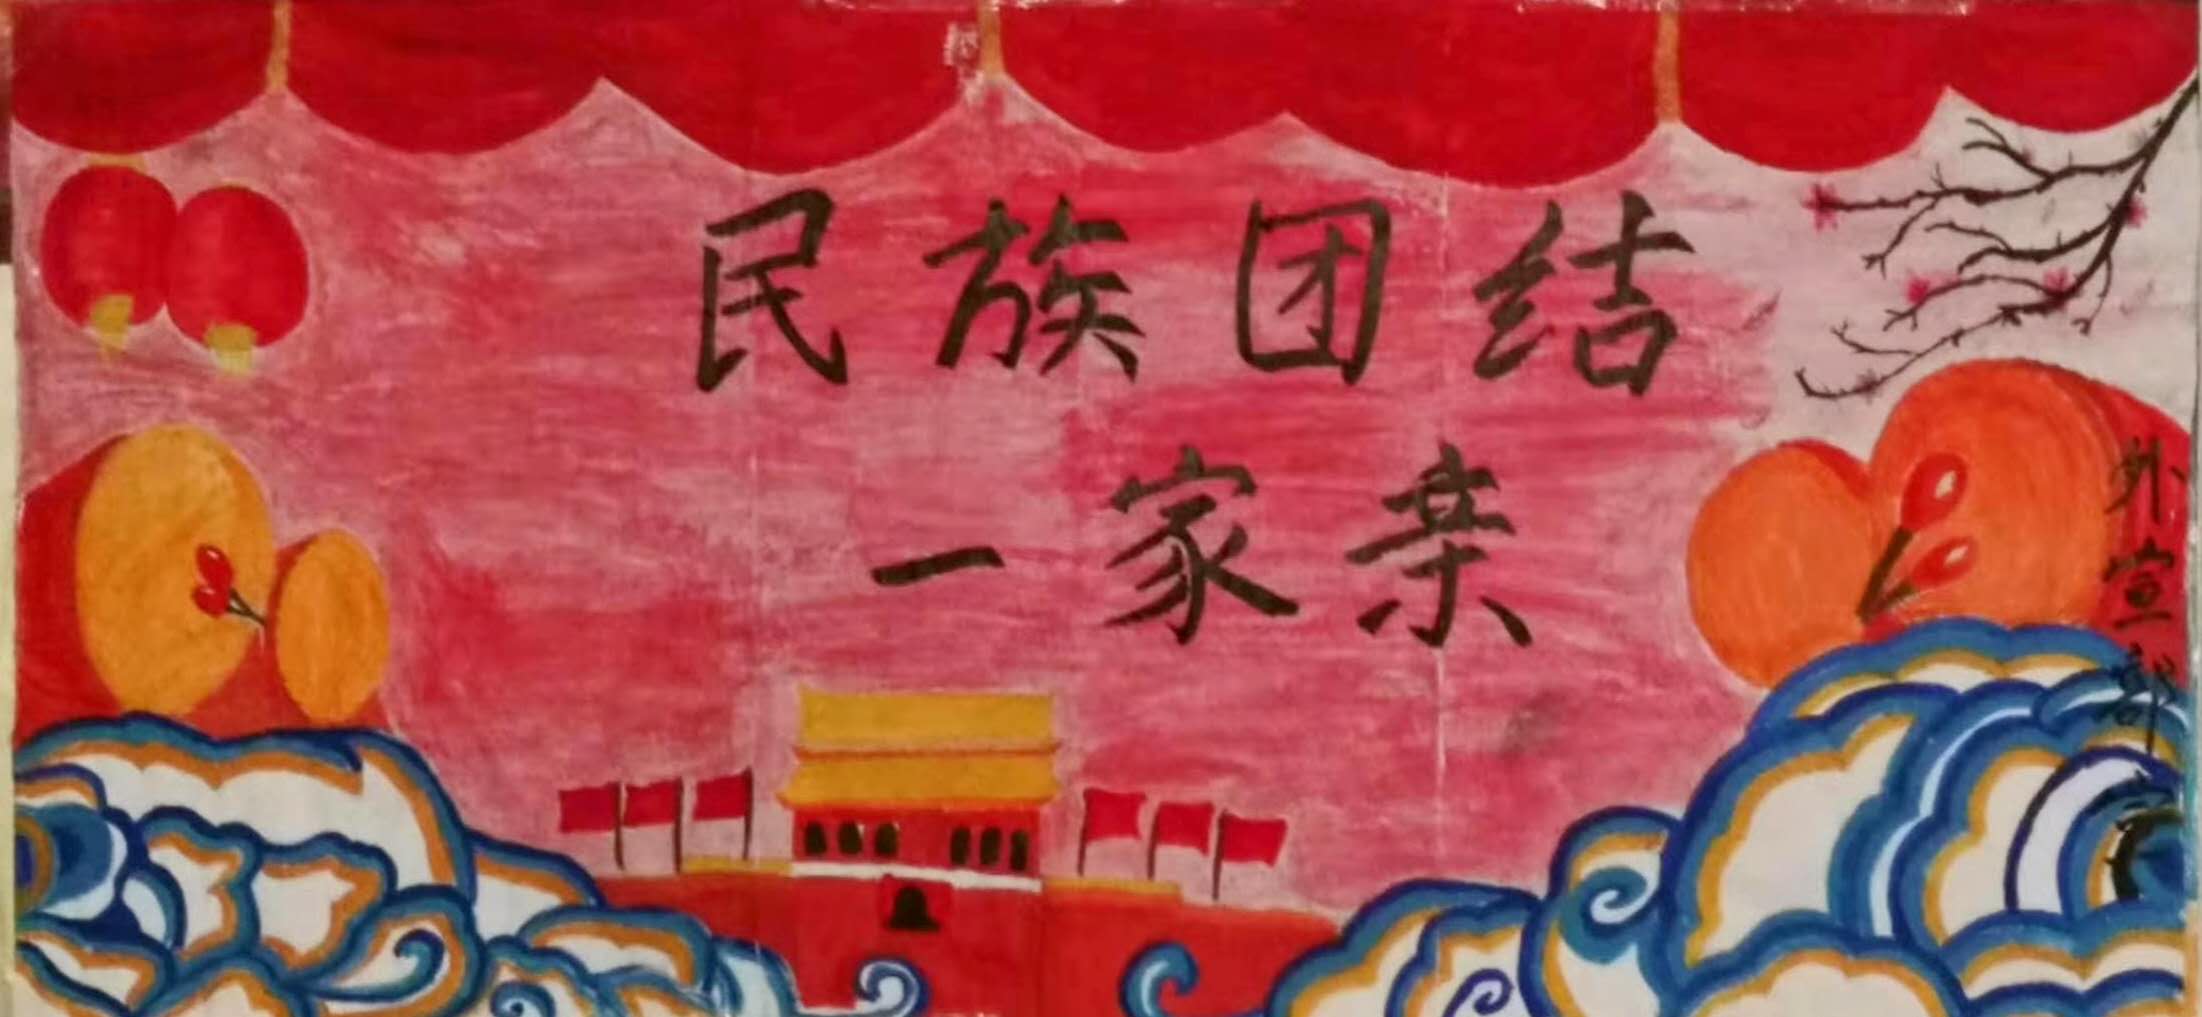 民族团结
一家亲
外宣部